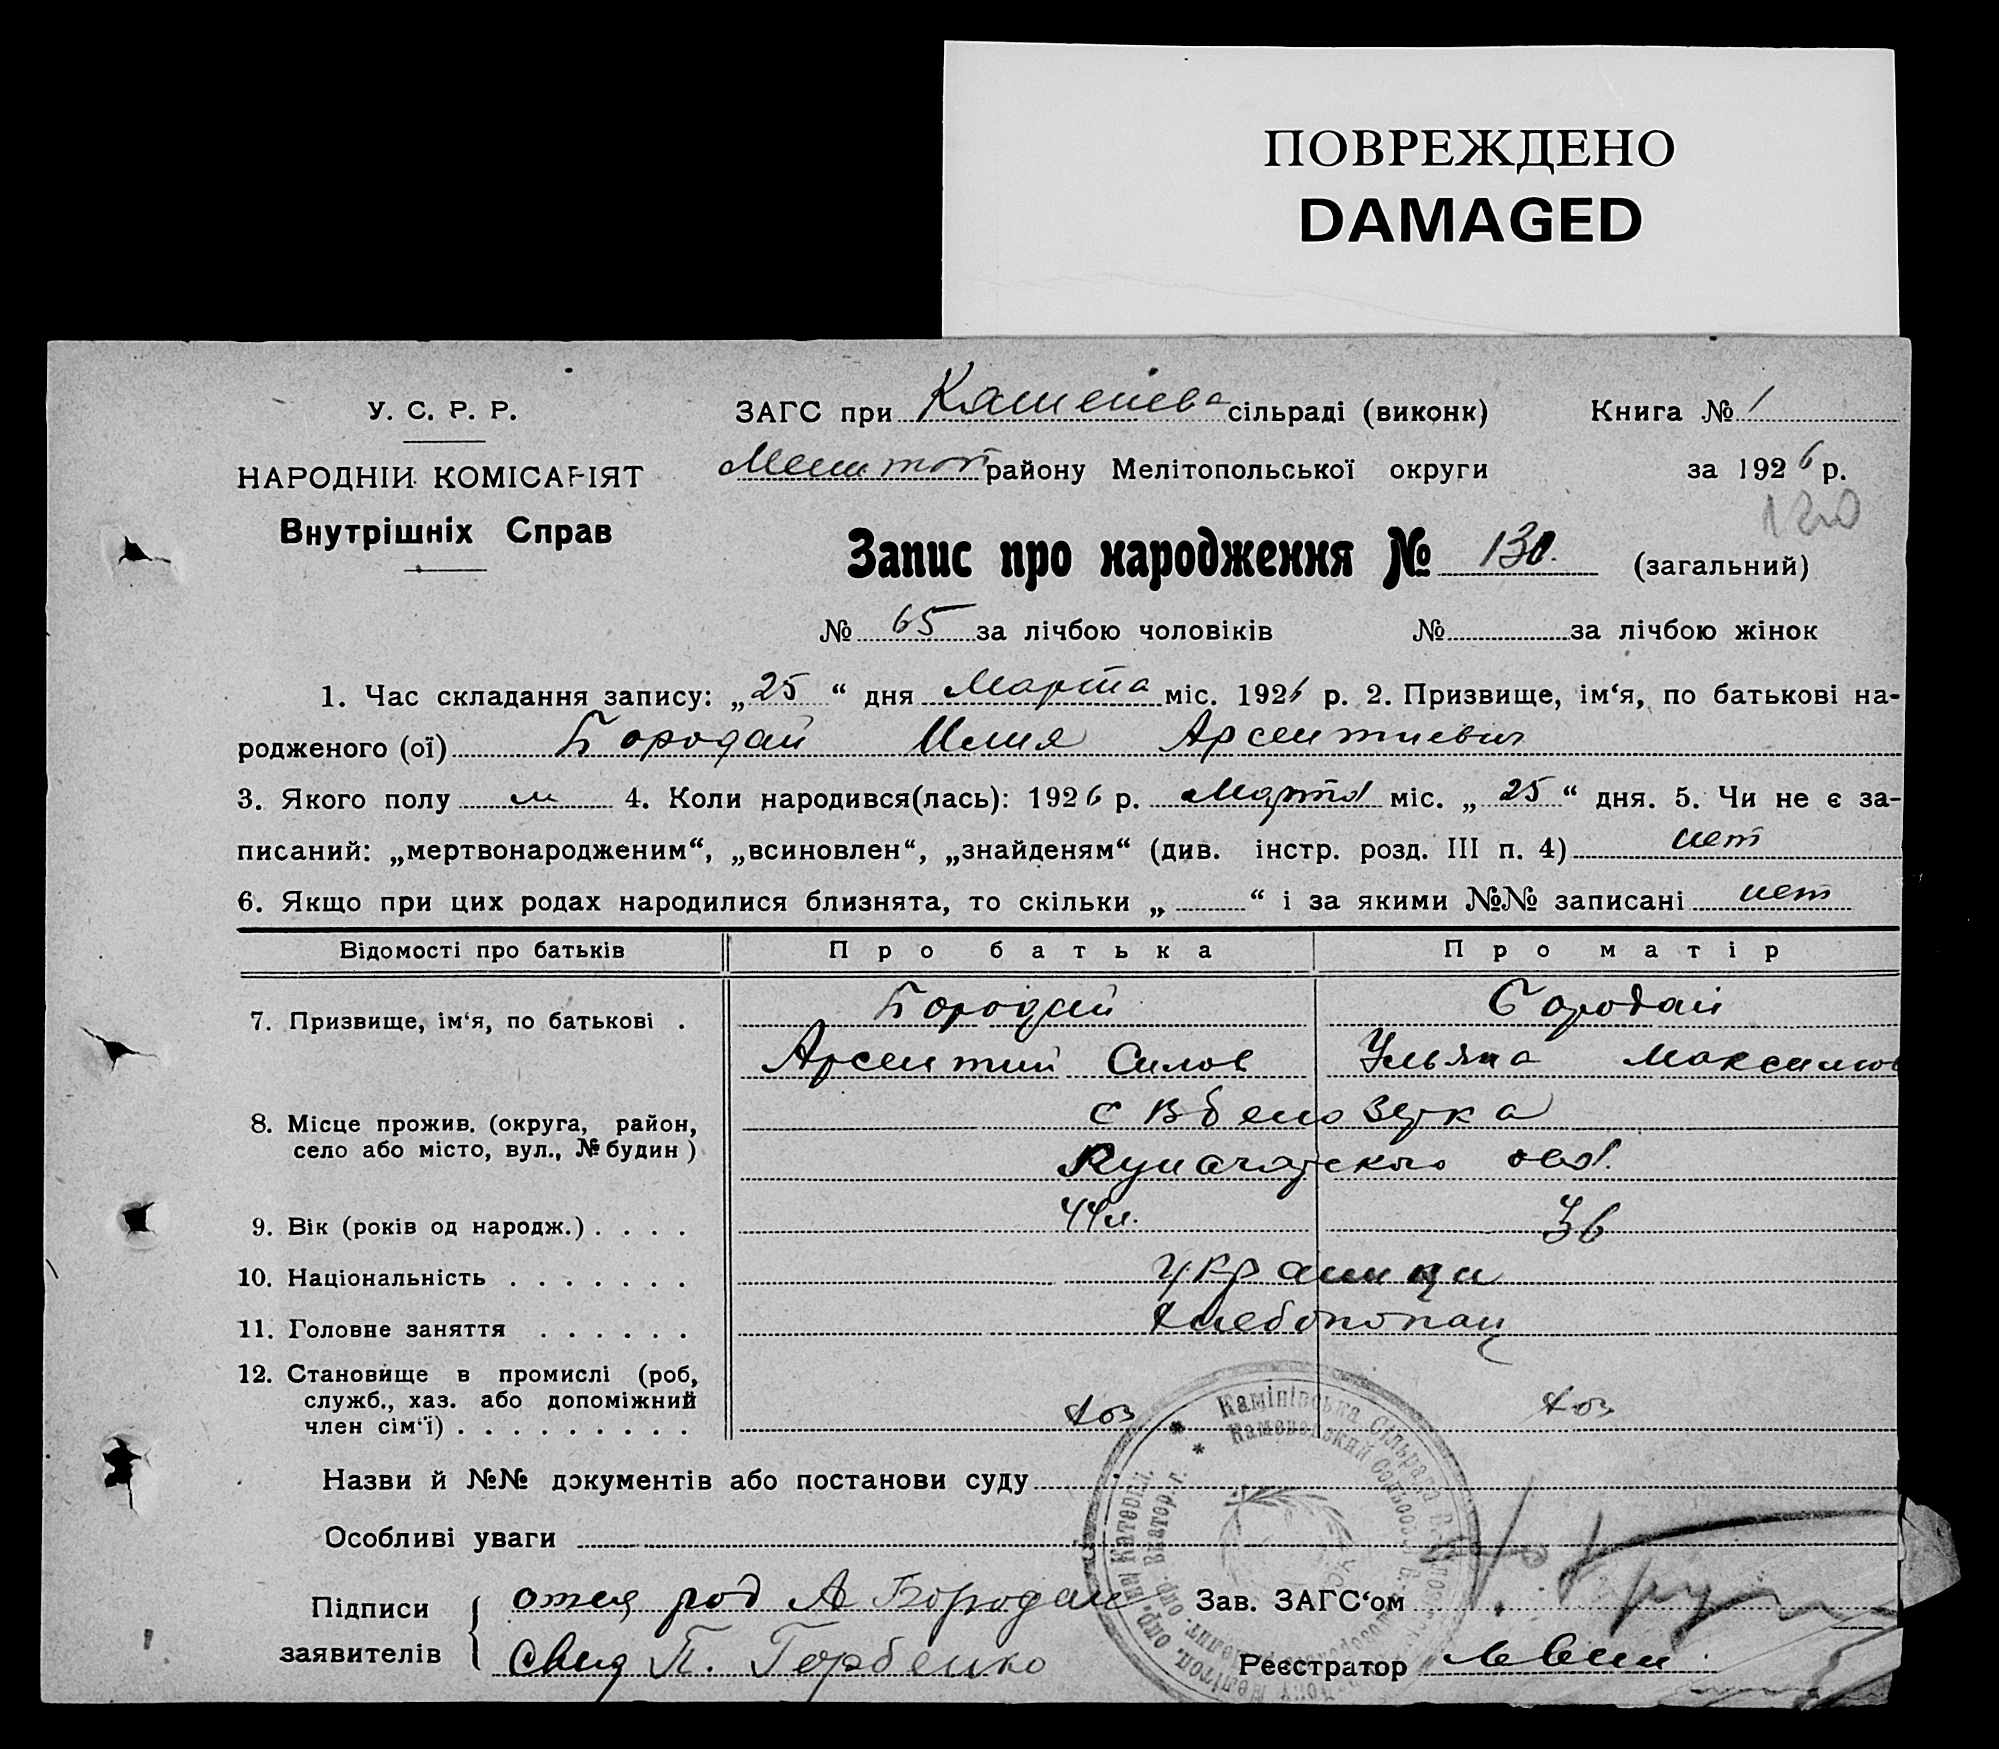 ПОВРЕЖДЕНО
DAMAGED
У. С. Р. Р.
НАРОДНІЙ КОМІСАРІЯТ
Внутрішніх Справ
ЗАГС при сільраді (виконк) Книга № 1
району Мелітопольської округи за 1926 р.
120
Запис про народження № 130. (загальний)
№ 65 за лічбою чоловіків № за лічбою жінок
1. Час складання запису: „25“ дня Марта міс. 1926 р. 2. Призвище, ім‘я, по батькові на-
родженого (ої) Бородай Илия Арсентиевич
3. Якого полу м 4. Коли народився(лась): 1926 р. Марта міс. „25“ дня. 5. Чи не є за-
писаний: „мертвонародженим“, „всиновлен“, „знайденям“ (див. інстр. розд. III п. 4) нет
6. Якщо при цих родах народилися близнята, то скільки „ “ і за якими №№ записані нет
Відомості про батьків Про батька Про матір
7. Призвище, ім‘я, по батькові . Бородай Бородай
Арсентий Силов Ульяна Максимов
8. Місце прожив. (округа, район, с Вбелозерка
село або місто, вул., № будин )
9. Вік (років од народж.) . . . . 44 л. 36
10. Національність . . . . . . . украинци
11. Головне заняття . . . . . . хлебопашц
12. Становище в промислі (роб,
служб., хаз. або допоміжний
член сім‘ї) . . . . . . . . . хоз хоз
Камінівська Сільрада
Каменовский Сельсовет
Назви й №№ документів або постанови суду
Особливі уваги
Підписи отец род А Бородай Зав. ЗАГС‘ом
заявителів свид П. Горбенко Реєстратор